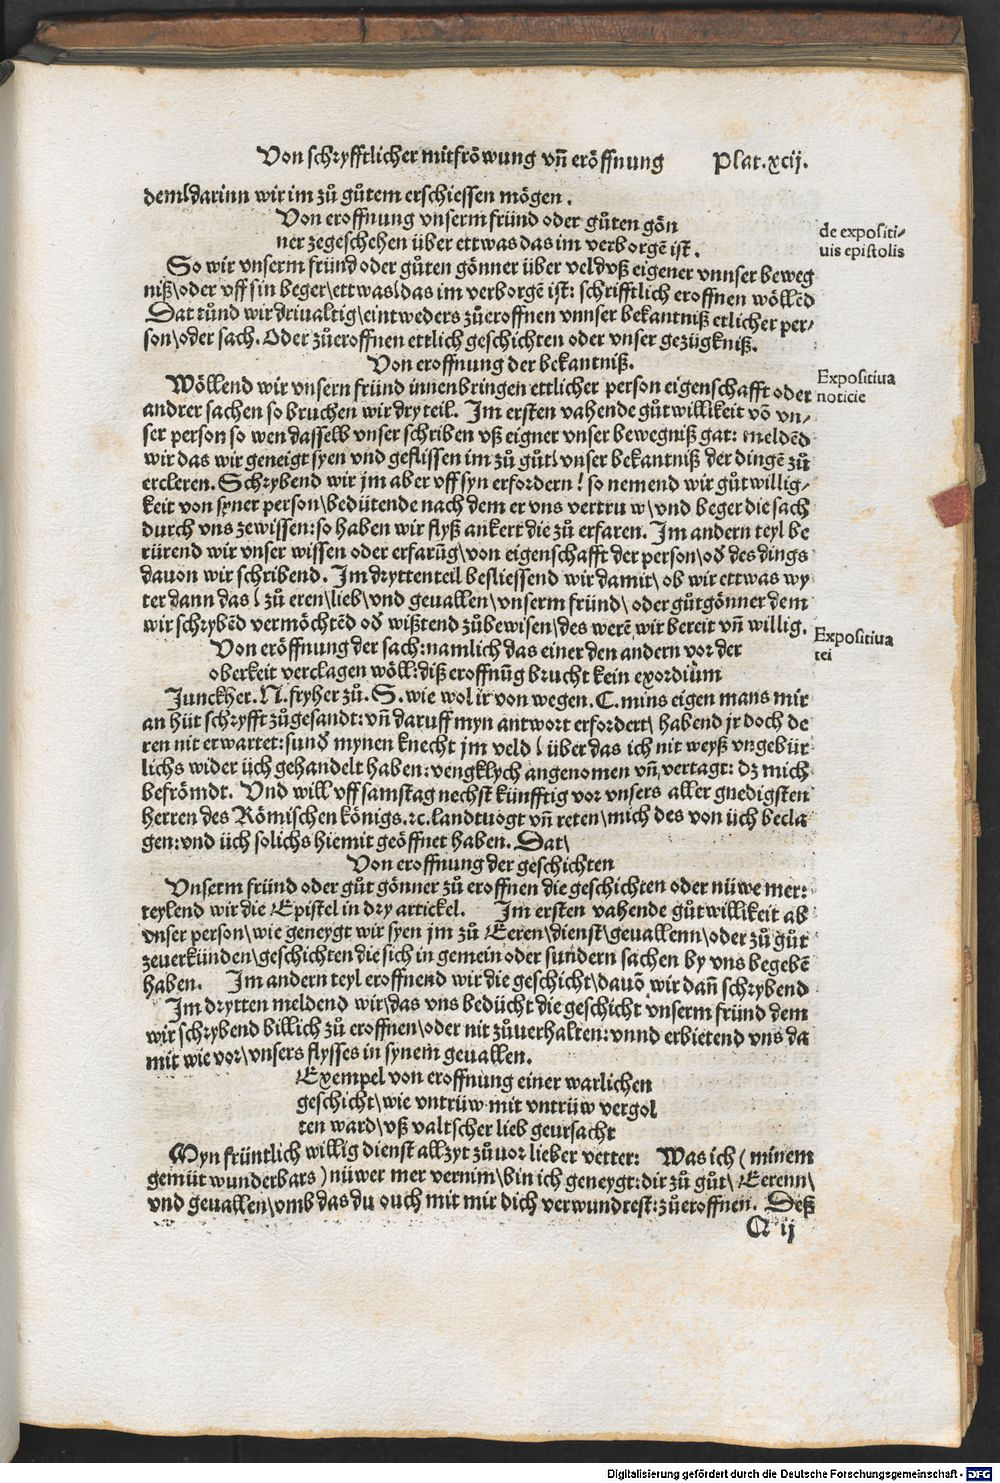 Von schryfftlicher mitfröwung vn̄ eröffnung Plat.xcij.
dem\darinn wir im zů gůtem erschiessen mögen.
Von eroffnung vnserm fründ oder gůten gön
ner zegeschehen über ettwas das im verborgē ist.
de expositi-
uis epistolis
So wir vnserm fründ oder gůten gönner über veld vß eigener vnnser beweg
niß\oder vff sin beger\ettwas\das im verborgē ist: schrifftlich eroffnen wöllēd
Dat tůnd wir driualtig\eintweders zůeroffnen vnnser bekantniß etlicher per-
son\oder sach. Oder zůeroffnen ettlich geschichten oder vnser gezügkniß.
Von eroffnung der bekantniß.
Expositiua
noticie
Wöllend wir vnsern fründ innenbringen ettlicher person eigenschafft oder
andrer sachen so bruchen wir dry teil. Im ersten vahende gůtwillikeit vō vn-
ser person so wen dasselb vnser schriben vß eigner vnser bewegniß gat: meldēd
wir das wir geneigt syen vnd geflissen im zů gůt\vnser bekantniß der dingē zů
ercleren. Schrybend wir jm aber vff syn erfordern! so nemend wir gůtwillig-
keit von syner person\bedütende nach dem er vns vertruw\vnd beger die sach
durch vns zewissen: so haben wir flyß ankert die zů erfaren. Im andern teyl be
rürend wir vnser wissen oder erfarūg\von eigenschafft der person\od̄ des dings
dauon wir schribend. Im drytten teil besliessend wir damit\ob wir ettwas wy
ter dann das\zů eren\lieb\vnd geuallen\vnserm fründ\oder gůt gönner dem
wir schrybēd vermöchtēd od̄ wißtend zůbewisen\des werē wir bereit vn̄ willig.
Expositiua
rei
Von eröffnung der sach: namlich das einer den andern vor der
oberkeit verclagen wöll: diß eroffnūg brucht kein exordium
Junckher. N. fryher zů. S. wie wol ir von wegen. C. mins eigen mans mir
an hüt schryfft zůgesandt: vn̄ daruff myn antwort erfordert\habend jr doch de
ren nit erwartet: sund̄ mynen knecht jm veld\über das ich nit weyß vngebür
lichs wider üch gehandelt haben: vengklych angenomen vn̄ vertagt: dz mich
befrömdt. Vnd will vff samstag nechst künfftig vor vnsers aller gnedigsten
herren des Römischen königs. ꝛc. landtuogt vn̄ reten\mich des von üch becla
gen: vnd üch solichs hiemit geöffnet haben. Dat\
Von eroffnung der geschichten
Vnserm fründ oder gůt gönner zů eroffnen die geschichten oder nüwe mer:
teylend wir die Epistel in dry artickel. Im ersten vahende gůtwillikeit ab
vnser person\wie geneygt wir syen jm zů Eeren\dienst\geuallenn\oder zů gůt
zeuerkünden\geschichten die sich in gemein oder sundern sachen by vns begebē
haben. Im andern teyl eroffnend wir die geschicht\dauō wir dan̄ schrybend
Im drytten meldend wir\das vns bedücht die geschicht vnserm fründ dem
wir schrybend billich zů eroffnen\oder nit zůuerhalten: vnnd erbietend vns da
mit wie vor\vnsers flysses in synem geuallen.
Exempel von eroffnung einer warlichen
geschicht\wie vntrüw mit vntrüw vergol
ten ward\vß valtscher lieb geursacht
Myn früntlich willig dienst allzyt zůuor lieber vetter: Was ich (minem
gemüt wunderbars) nüwer mer vernim\bin ich geneygt: dir zů gůt\Eerenn\
vnd geuallen\vmb das du ouch mit mir dich verwundrest: zůeroffnen. Deß
Q ij
Digitalisierung gefördert durch die Deutsche Forschungsgemeinschaft - DFG